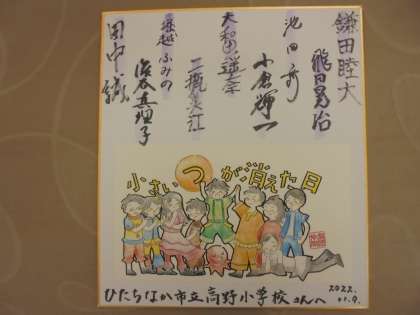 鎌田睦大
飛田晃治
小倉輝一
大和田
二瓶美江
堀越ふみの
澁谷真理子
田中誠
小さい つ が消えた日
ひたちなか市立高野小学校さんへ
2022.
11.9.